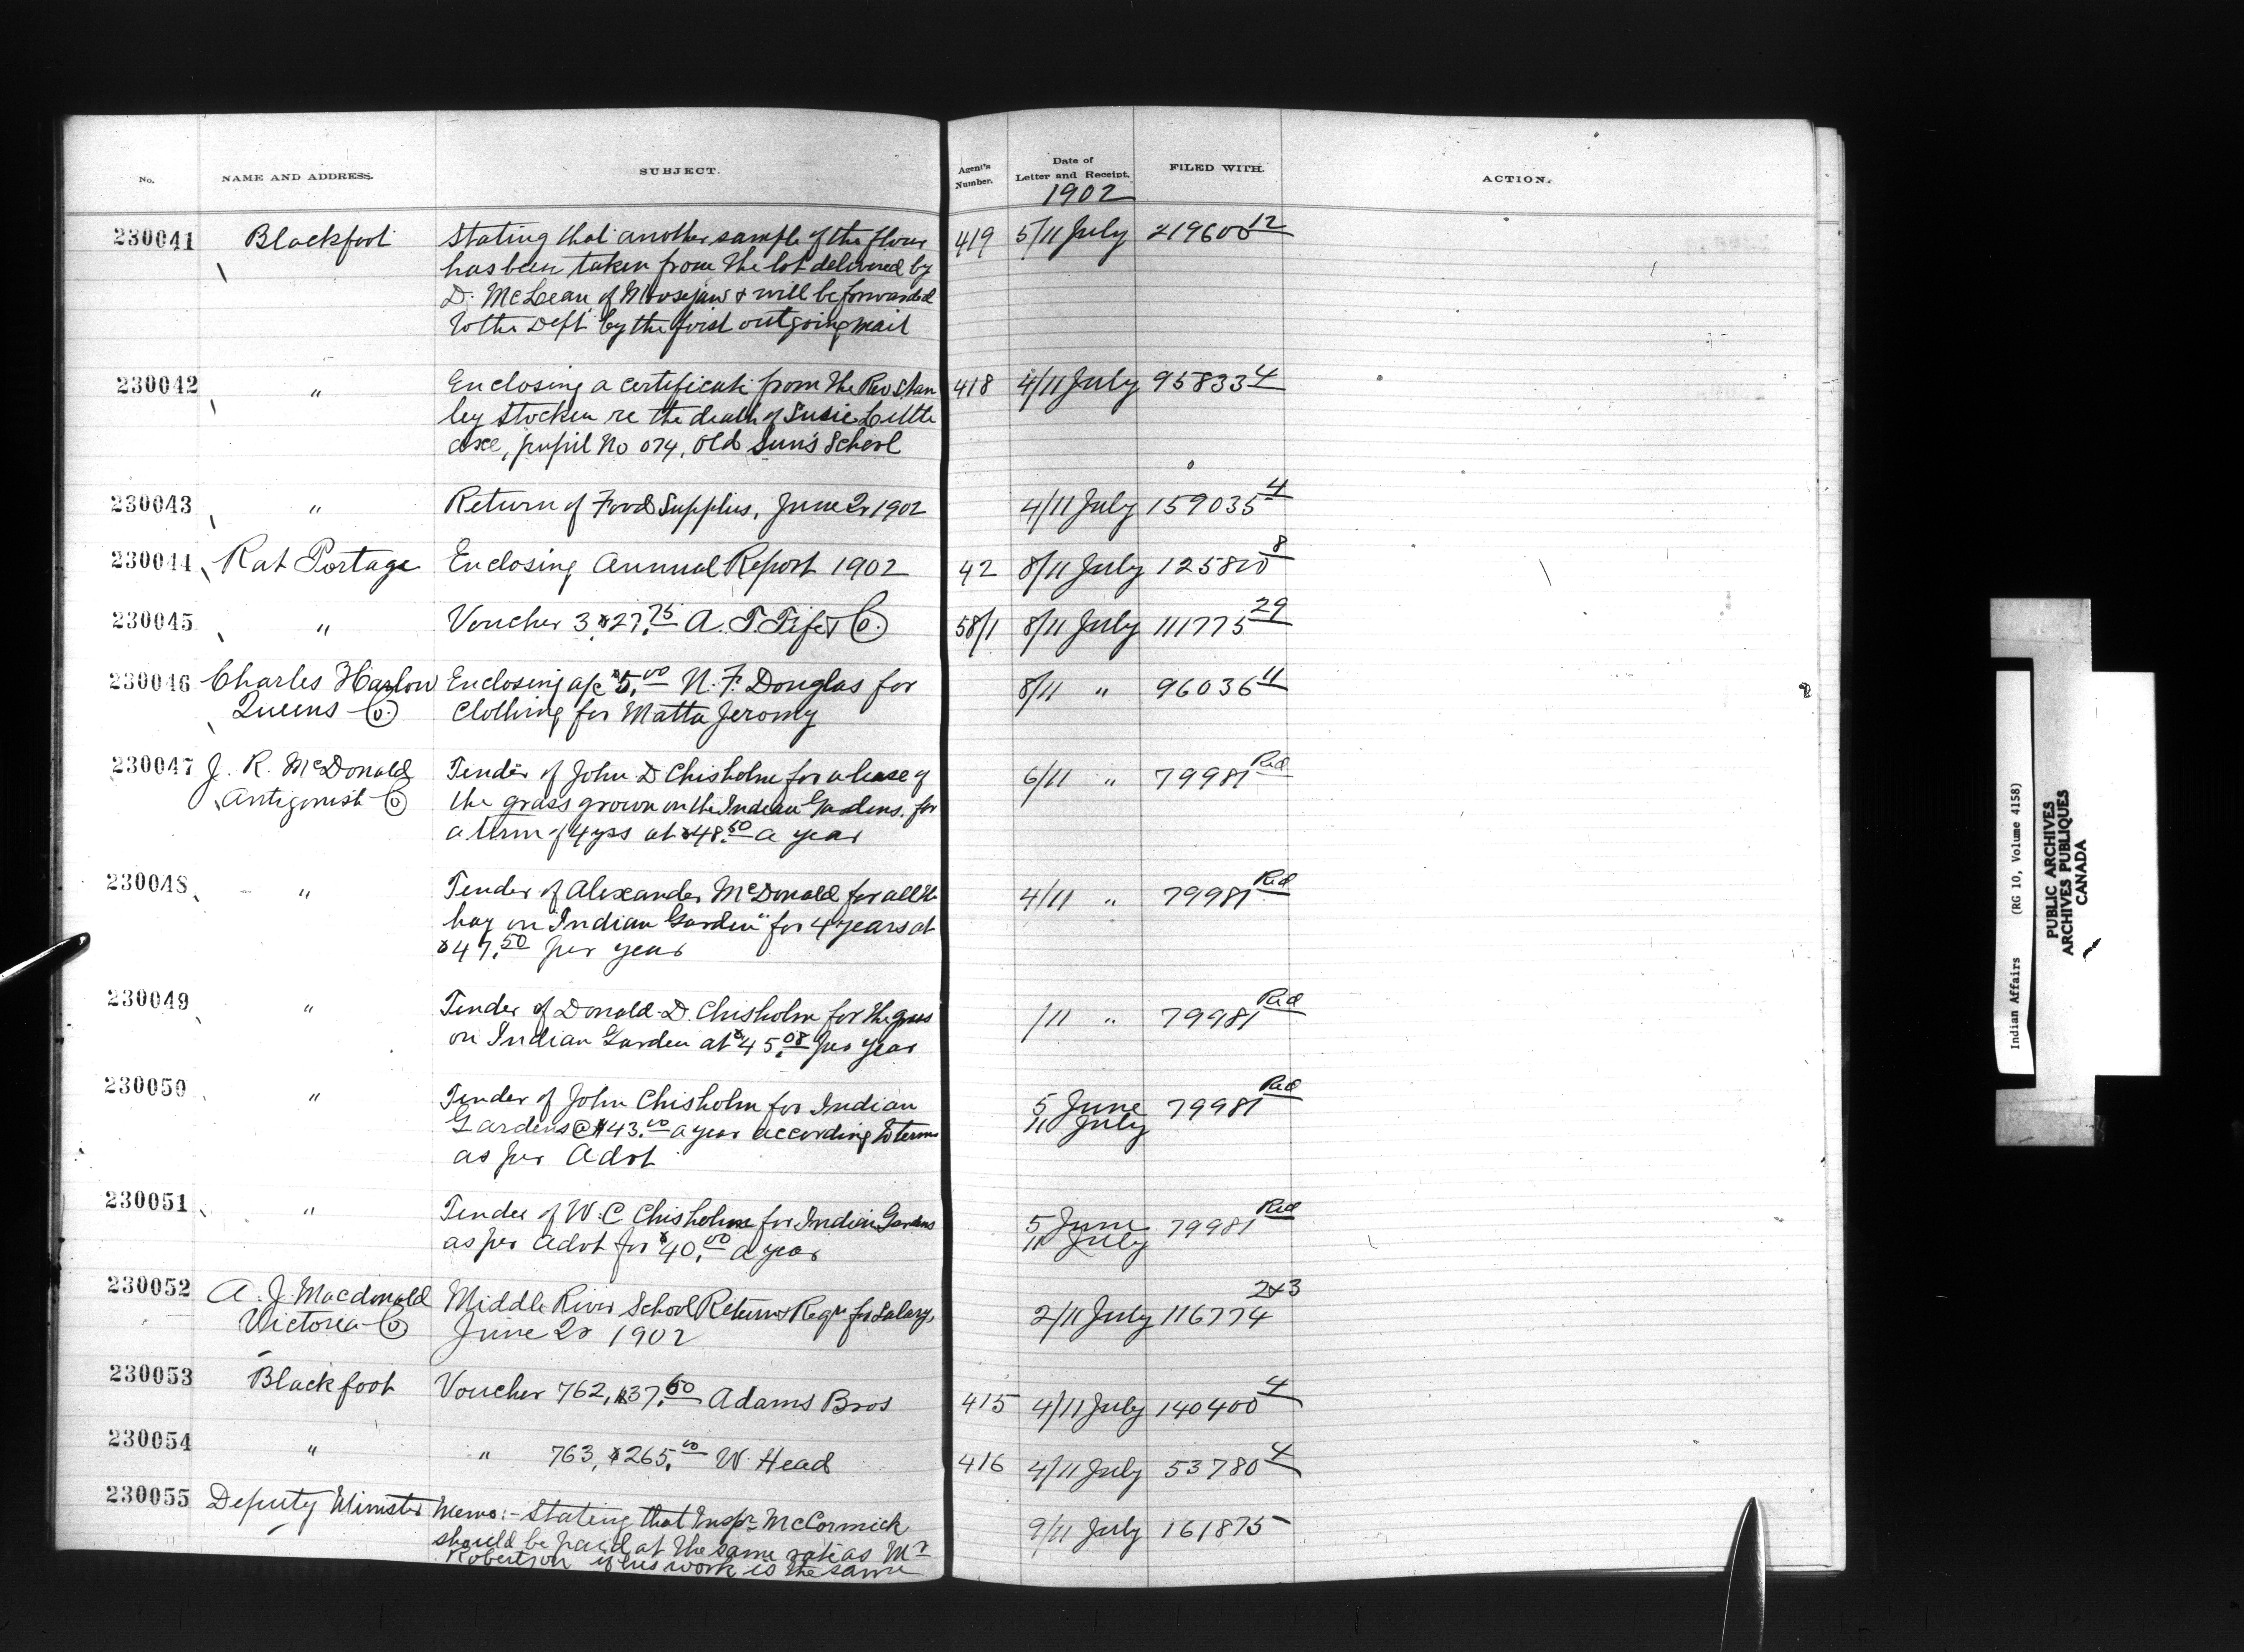 No. NAME AND ADDRESS. SUBJECT. Agent's Number. Date of Letter and Receipt. FILED WITH. ACTION.
1902
230041 Blackfoot Stating that another sample of the flour 419 5/11 July 219600 12
has been taken from the lot delivered by
D. McLean of Moosejaw & will be forwarded
to the Dept by the first outgoing mail
230042 " Enclosing a certificate from the Rev Stan 418 4/11 July 95833 4
ley Stocken re the death of Susie Little
axe, pupil No 074, Old Sun's School
230043 " Return of Food Supplies, June Qr 1902 4/11 July 159035 4
230044 Rat Portage Enclosing Annual Report 1902 42 8/11 July 125810 8
230045 " Voucher 3 $27.75 A. T. Fife & Co. 58/1 8/11 July 111775 29
230046 Charles Harlow Enclosing a/c $5.00 N. F. Douglas for 8/11 " 96036 4
Queens Co. Clothing for Matta Jeromy
230047 J. R. McDonald Tender of John D Chisholm for a lease of 6/11 " 79981 Red
Antigonish Co the grass grown on the Indian Gardens. for
a term of 4 yrs at $48.50 a year
230048 " Tender of Alexander McDonald for all the 4/11 " 79981 Red
hay on "Indian Garden" for 4 years at
$47.50 per year
230049 " Tender of Donald D. Chisholm for the grass /11 " 79981 Red
on Indian Garden at $45.08 per year
230050 " Tender of John Chisholm for Indian 5 June 79981 Red
Gardens @ $43.00 a year according to terms 11 July
as per Advt
230051 " Tender of W. C Chisholm for Indian Gardens 5 June 79981 Red
as per Advt for $40.00 a year 11 July
230052 A. J. Macdonald Middle River School Return & Reqn for Salary, 2/11 July 116774 2&3
Victoria Co June Qr 1902
230053 Blackfoot Voucher 762, $37.60 Adams Bros 415 4/11 July 140400 4
230054 " " 763, $265.00 W. Head 416 4/11 July 53780 4
230055 Deputy Minister Memo:- Stating that Inspr McCormick 9/11 July 161875
should be paid at the same rate as Mr
Robertson if his work is the same
Indian Affairs (RG 10, Volume 4158)
PUBLIC ARCHIVES
ARCHIVES PUBLIQUES
CANADA